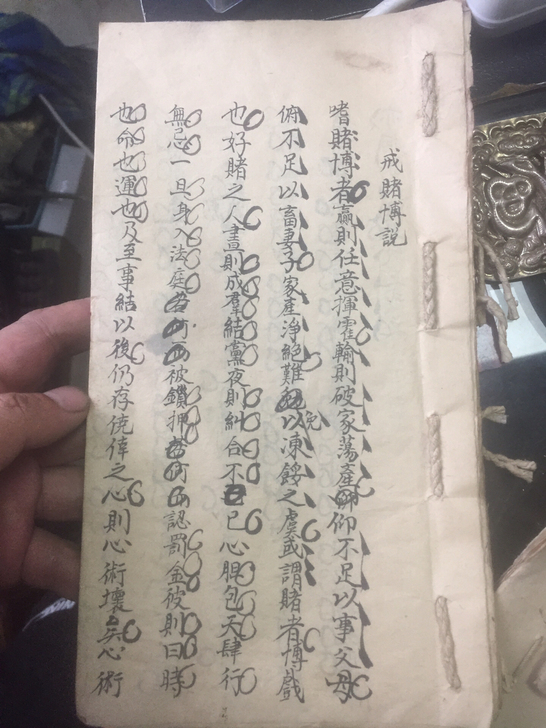 戒賭博説
嗜賭博者贏則任意揮霍輸則破家蕩產仰不足以事父母
俯不足以畜妻子家產淨絕難免以凍餒之虞或謂賭者博戲
也好賭之人晝則成羣結黨夜則糾合不已心胆包天肆行
無忌一旦身入法庭若何而被鎖押若何而認罰金彼則曰時
也命也運也及至事結以後仍存僥倖之心則心術壞矣心術